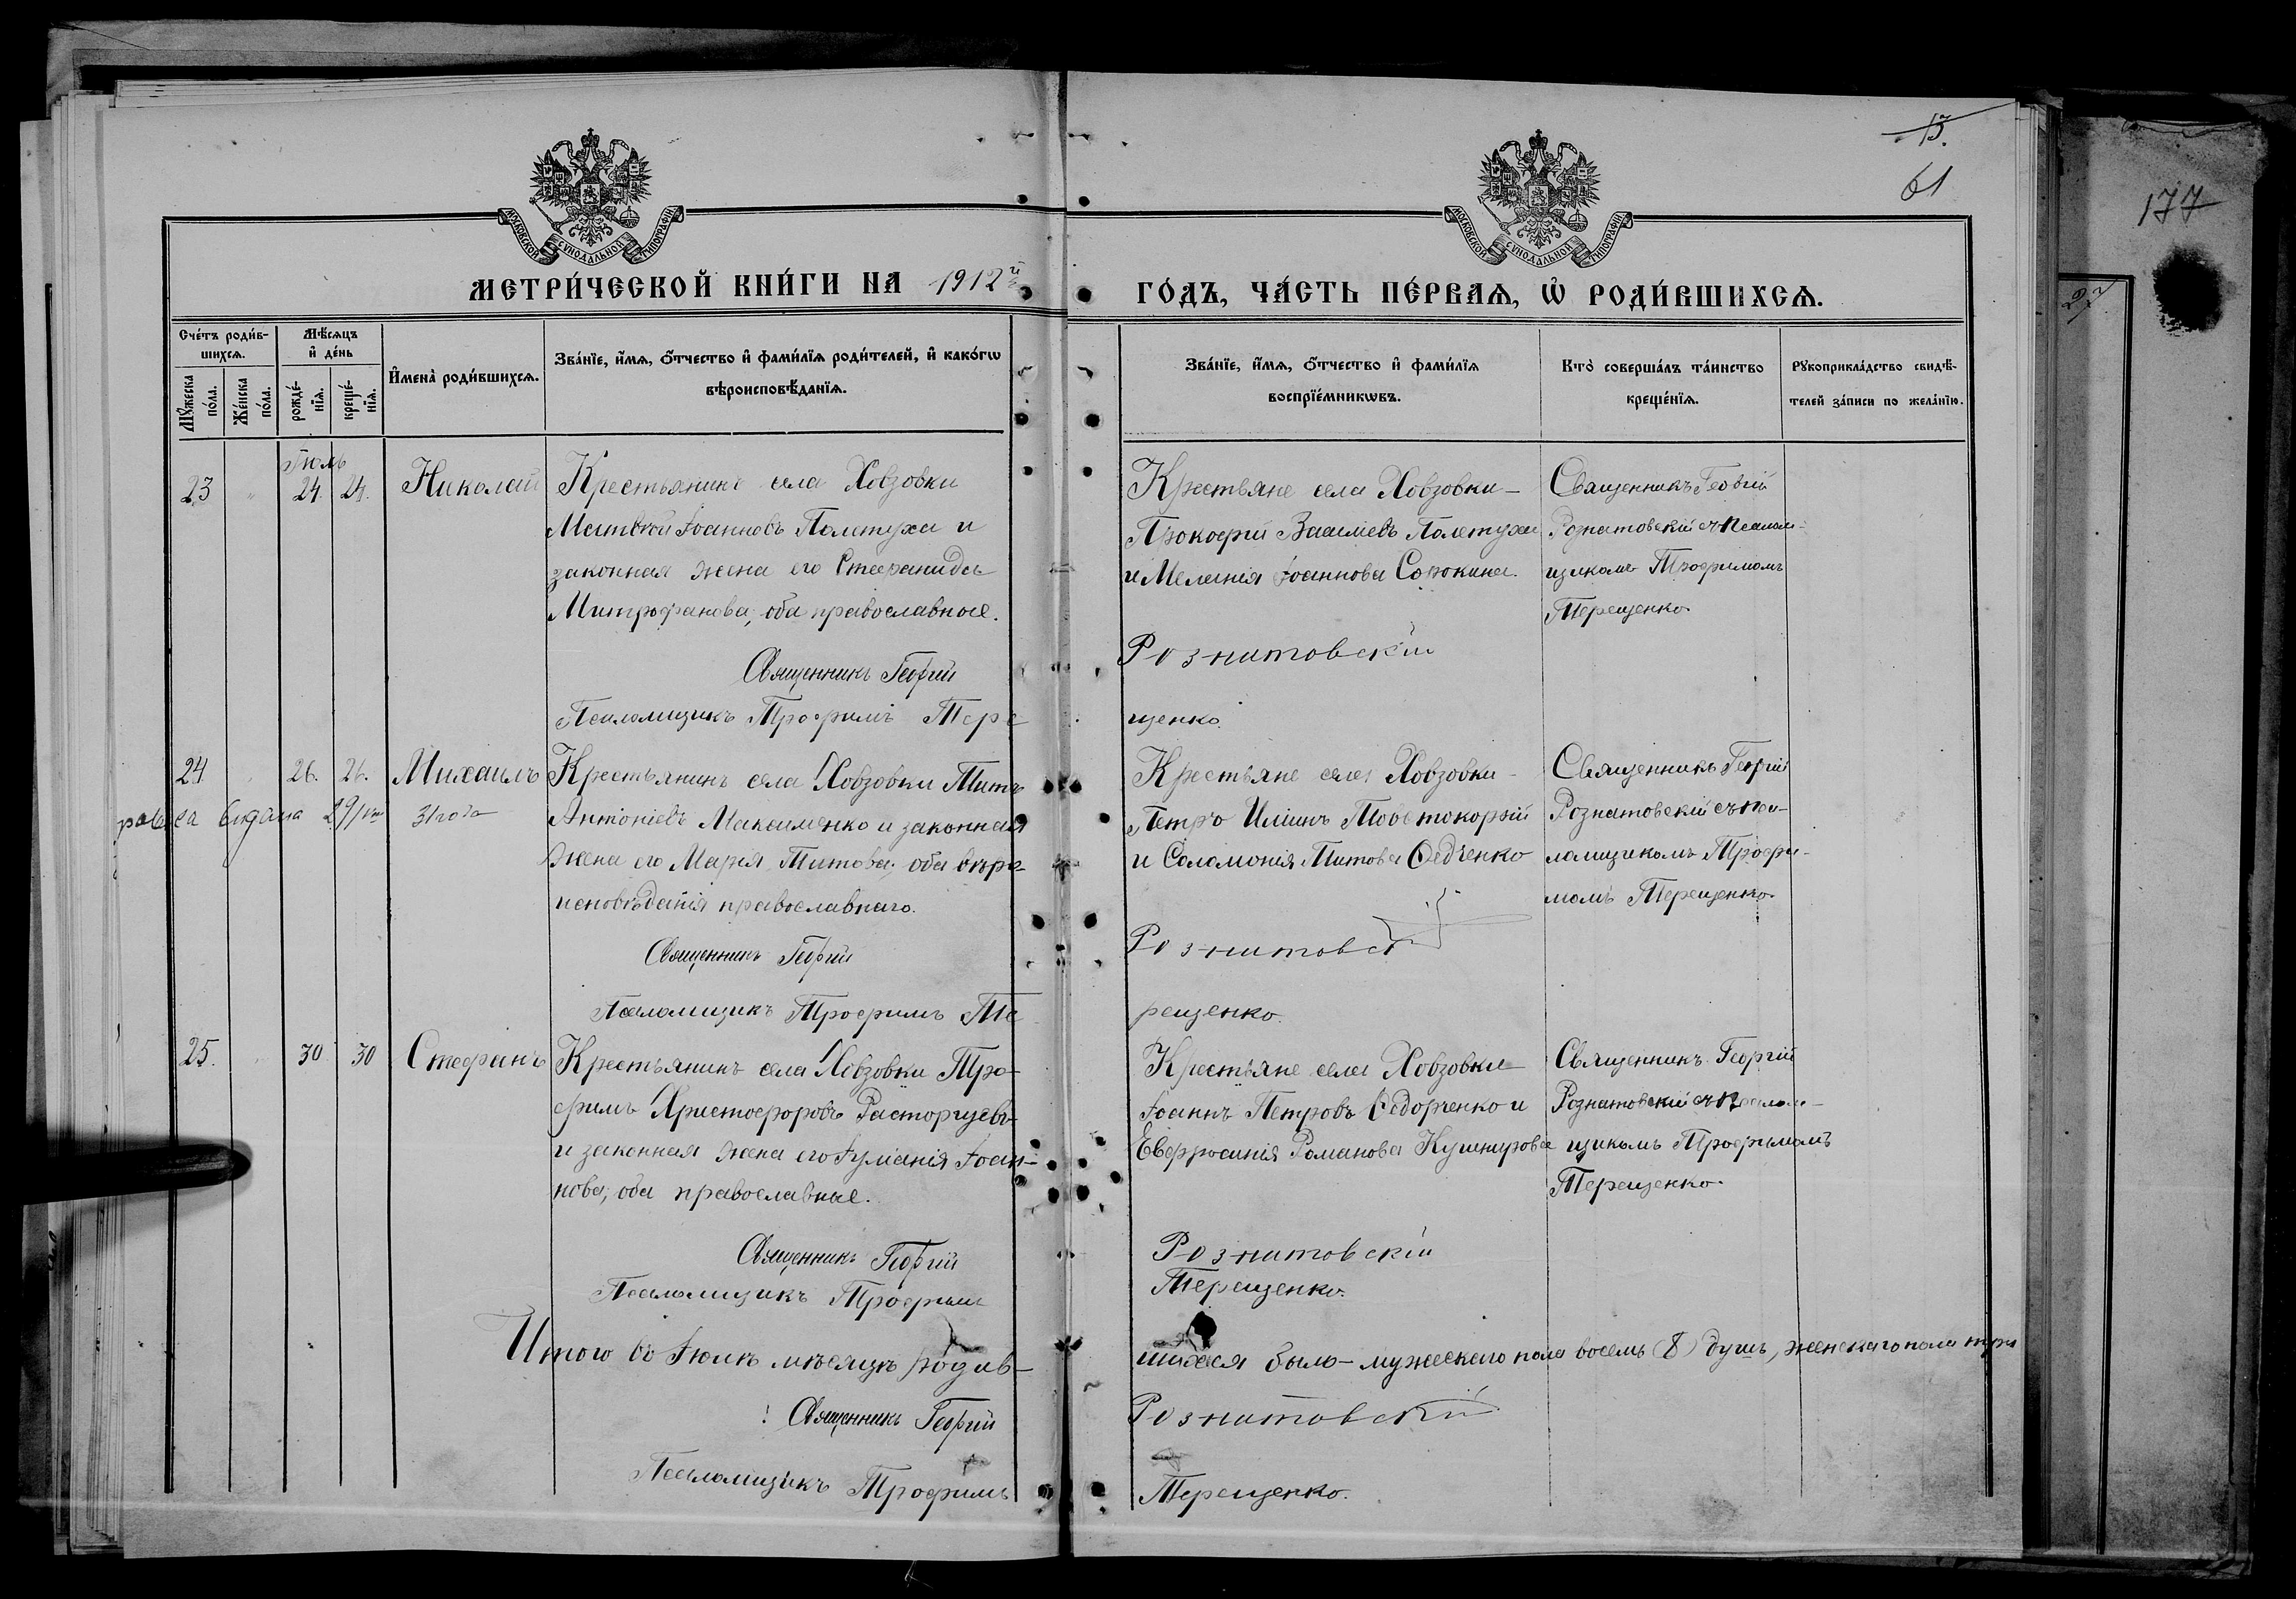 13.
61
177
27
МОСКОВСКОЙ СѴНОДАЛЬНОЙ ТИПОГРАФІИ
МОСКОВСКОЙ СѴНОДАЛЬНОЙ ТИПОГРАФІИ
МЕТРИ́ЧЕСКОЙ КНИ́ГИ НА 1912й
ГО́ДЪ, ЧА́СТЬ ПЕ́РВАѦ, Ѡ҆ РОДИ́ВШИХСѦ.
Сче́тъ роди́в-
шихсѧ.
Мѣ́сѧцъ
и҆ де́нь
Мꙋ́жеска
по́ла.
Же́нска
по́ла.
рожде́-
нїѧ.
креще́-
нїѧ.
И҆мена̀ роди́вшихсѧ.
Зва́нїе, и҆́мѧ, ѻ҆́тчество и҆ фами́лїѧ роди́телей, и҆ како́гѡ
вѣроисповѣ́данїѧ.
Зва́нїе, и҆́мѧ, ѻ҆́тчество и҆ фами́лїѧ
воспрїе́мникѡвъ.
Кто̀ соверша́лъ та́инство
креще́нїѧ.
Рꙋкоприкла́дство свидѣ́-
телей за́писи по жела́нїю.
Іюль
23 " 24. 24. Николай
Крестьянинъ села Ховзовки
Матвей Іоанновъ Полетуха и
законная жена его Стефанида
Митрофанова, оба православные.
Священникъ Георгий
Псаломщикъ Трофимъ Тере
Крестьяне села Ховзовки –
Прокофий Полетуха
и Меланія Іоаннова Сорокина.
Священникъ Георгій
Рознатовскій съ псалом-
щикомъ Трофимомъ
Терещенко.
Рознатовскій
щенко.
24 26. 26. Михаилъ
выдана 29/VIII 31 года
Крестьянинъ села Ховзовки Титъ
Антоніевъ Максименко и законная
жена его Марія Титова, оба вѣро-
исповѣданія православнаго.
Священникъ Георгий
Псаломщикъ Трофимъ Те
Крестьяне села Ховзовки –
Петръ Иліинъ Товстокорый
и Соломонія Титова Федченко
Священникъ Георгій
Рознатовскій съ пса-
ломщикомъ Трофи-
момъ Терещенко.
Рознатовскій
рещенко.
25. 30 30 Стефанъ
Крестьянинъ села Ховзовки Тро-
фимъ Христофоровъ Расторгуевъ
и законная жена его Іуліанія Іоан-
нова, оба православные.
Священникъ Георгий
Псаломщикъ Трофимъ
Крестьяне села Ховзовки
Іоаннъ Петровъ Федорченко и
Евфросинія Романова Кушнирова
Священникъ Георгій
Рознатовскій съ псалом-
щикомъ Трофимомъ
Терещенко.
Рознатовскій
Терещенко.
Итого въ Іюлѣ мѣсяцѣ родив-
шихся было – мужескаго пола восемь (8) душъ, женскаго пола три
Священникъ Георгий
Рознатовскій
Псаломщикъ Трофимъ
Терещенко.